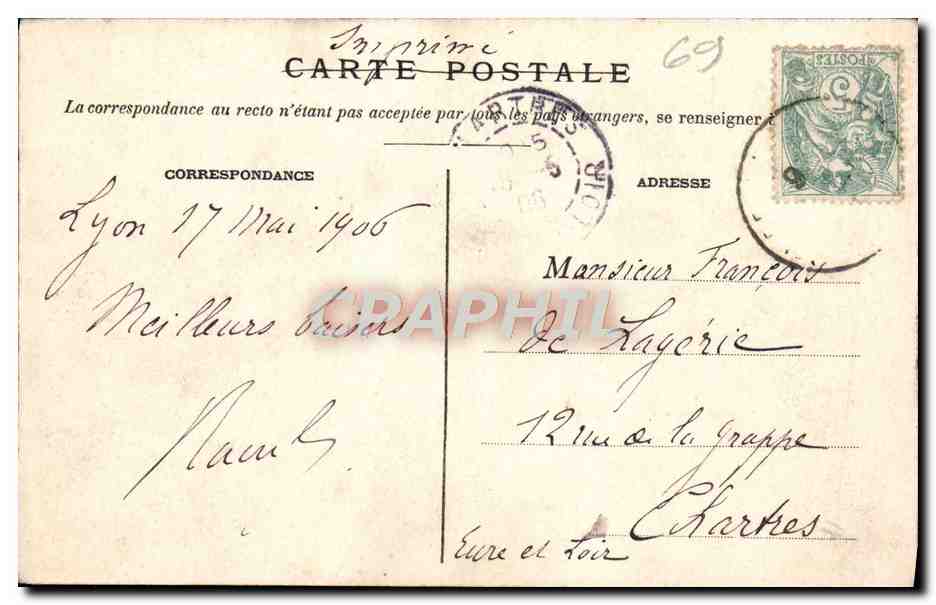 Imprimé
69
CARTE POSTALE
La correspondance au recto n'étant pas acceptée par tous les pays étrangers, se renseigner à
CORRESPONDANCE
ADRESSE
Lyon 17 Mai 1906
Meilleurs baisers
Raoul
Monsieur François
de Lagérie
12 rue de la Grappe
Chartres
Eure et Loir
POSTES
5
CHARTRES
5
06
LOIR
CRAPHIL